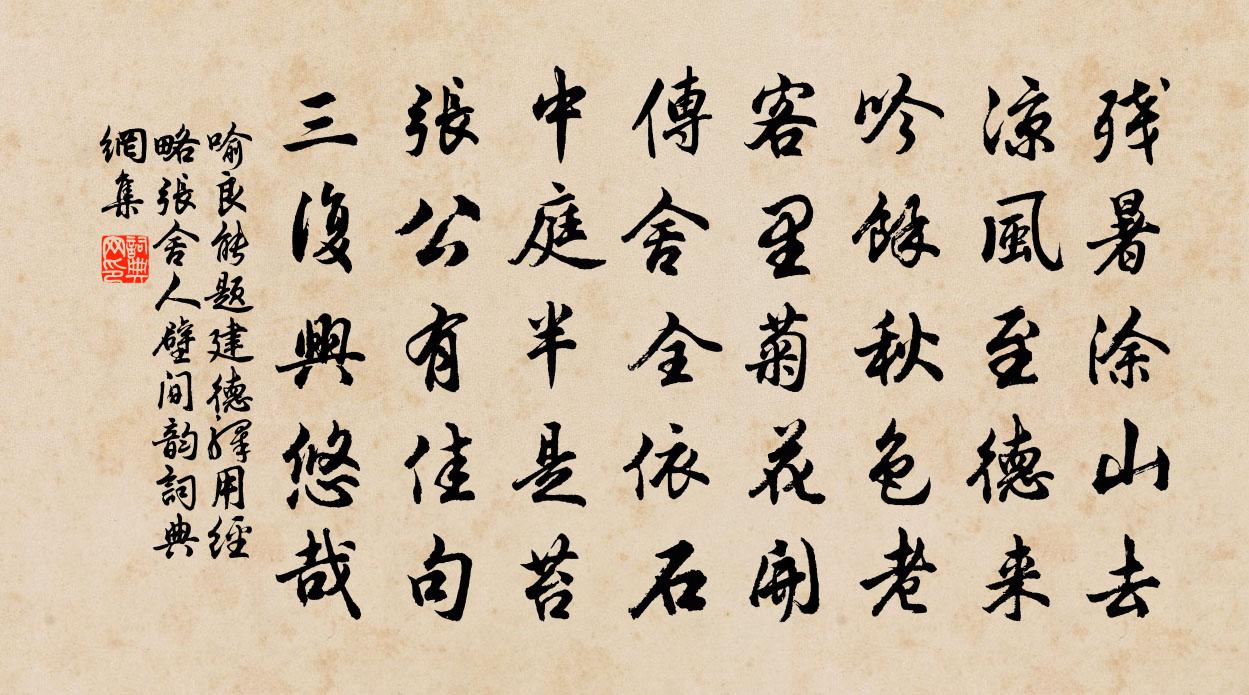 残暑涂山去
涼風至德来
吟餘秋色老
客里菊花開
傳舍全依石
中庭半是苔
張公有佳句
三復興悠哉
喻良能题建德驛用經
略張舍人壁间韵詞典
網集
詞典网印